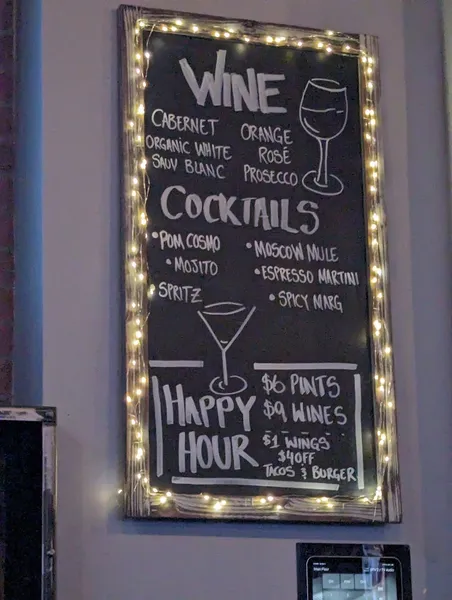 WINE
CABERNET
ORGANIC WHITE
SAUV BLANC
ORANGE
ROSÉ
PROSECCO
COCKTAILS
• POM COSMO
• MOJITO
• SPRITZ
• MOSCOW MULE
• ESPRESSO MARTINI
• SPICY MARG
HAPPY
HOUR
$6 PINTS
$9 WINES
$1 WINGS
$4 OFF
TACOS & BURGER